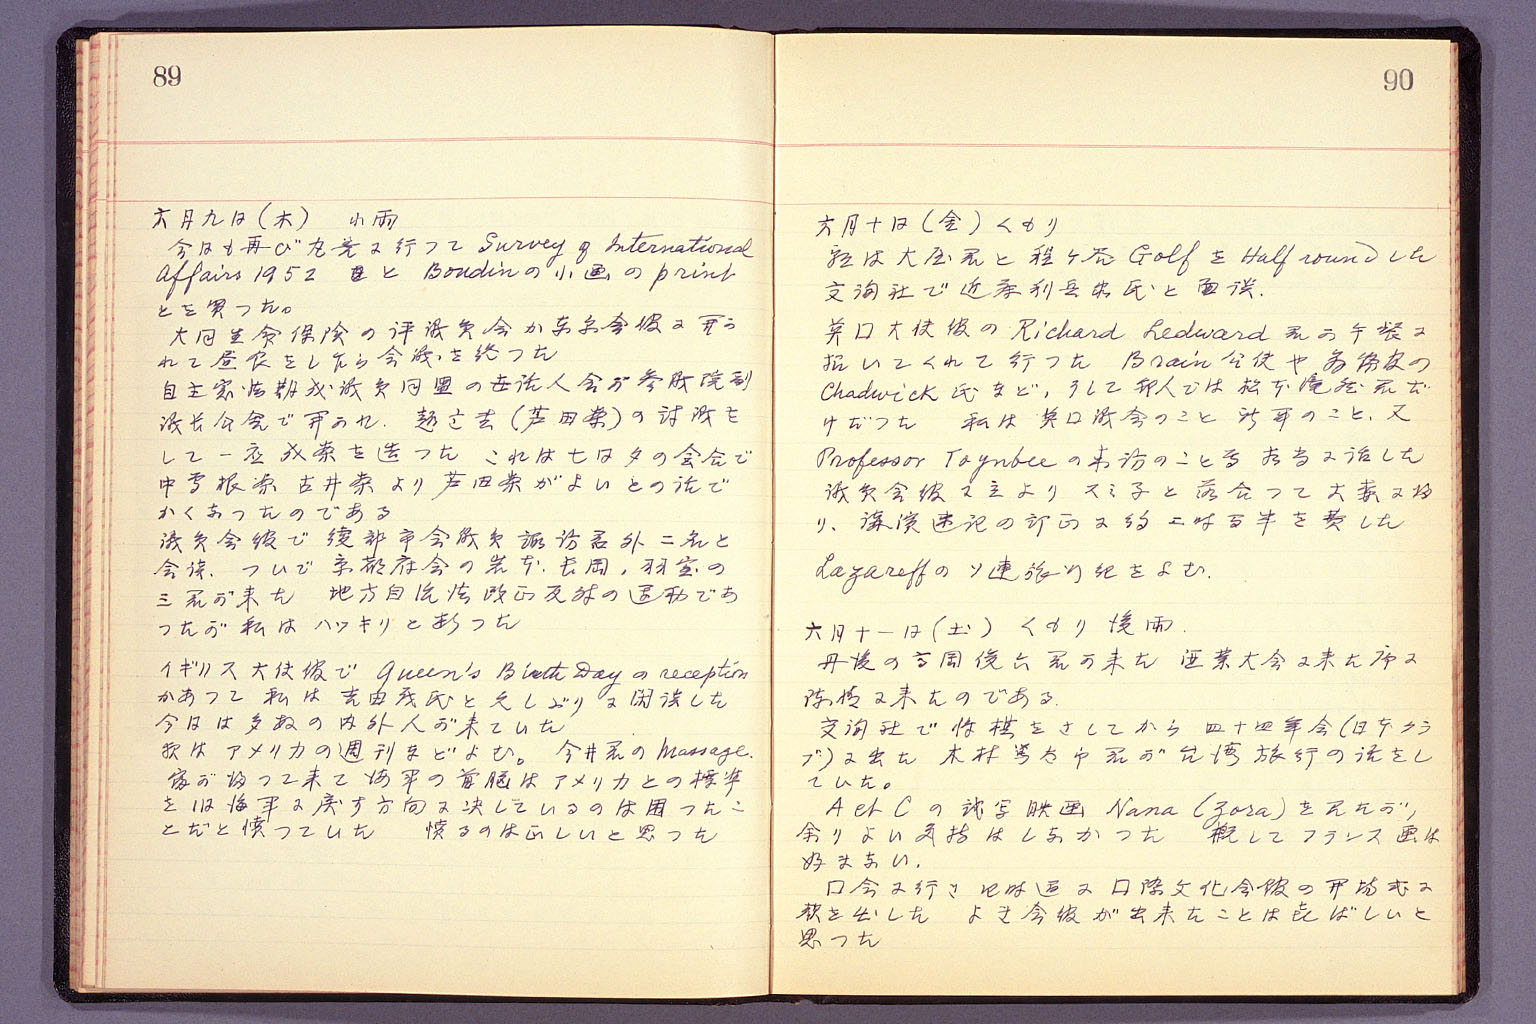 89
六月九日(木) 小雨
今日も再び丸善に行つて Survey of International
Affairs 1952 と Boudinの小画の print
とを買つた。
大同生命保険の評議員会が東京会館に開か
れて昼食をしたら会議を終つた
自主憲法期成議員同盟の世話人会が参議院副
議長公舎で開かれ、趣意書(芦田案)の討議を
して一応成案を造つた これは七日夕の会合で
中曽根案 古井案より芦田案がよいとの話で
かくなつたのである
議員会館で綾部市会議員諏訪君外二名と
会談、ついで京都府会の岩本、吉岡、羽室の
三君が来た 地方自治法改正反対の運動であ
つたが私はハツキリと断つた
イギリス大使館で Queen's Birth Dayの reception
があつて 私は吉田茂氏と久しぶりに閑談した
今日は多数の内外人が来ていた
夜はアメリカの週刊などよむ。 今井君の massage.
が帰つて来て海軍の首脳はアメリカとの標準
を旧海軍に戻す方向に決しているのは困つたこ
とだと憤つていた 憤るのは正しいと思つた
90
六月十日(金) くもり
朝は大屋君と程ケ谷 Golf を Half round した
交詢社で近藤利兵衛氏と面談.
英国大使館の Richard Ledward 君が午餐に
招いてくれて行つた Brain 公使や の
Chadwick 氏など、そして邦人では松本瀧蔵君だ
けだつた 私は英国議会のこと のこと、又
Professor Toynbee の来訪のこと等 に話した
議員会館に立より スミ子と落合つて大 に帰
り、講演速記の訂正に約二時間半を費した
Lazareffの ソ連旅行記をよむ.
六月十一日(土) くもり 後雨.
丹後の吉岡俊六君が来た 大会に来た序に
陳情に来たのである.
交詢社で将棋をさしてから 四十四年会(日本クラ
ブ)に出た 木村 君が台湾旅行の話をし
ていた。
A et C の試写映画 Nana (Zora) を見たが、
余りよい気持はしなかつた 概してフランス画は
好まない.
国会に行き に国際文化会館の開場式に
顔を出した よき会館が出来たことは喜ばしいと
思つた